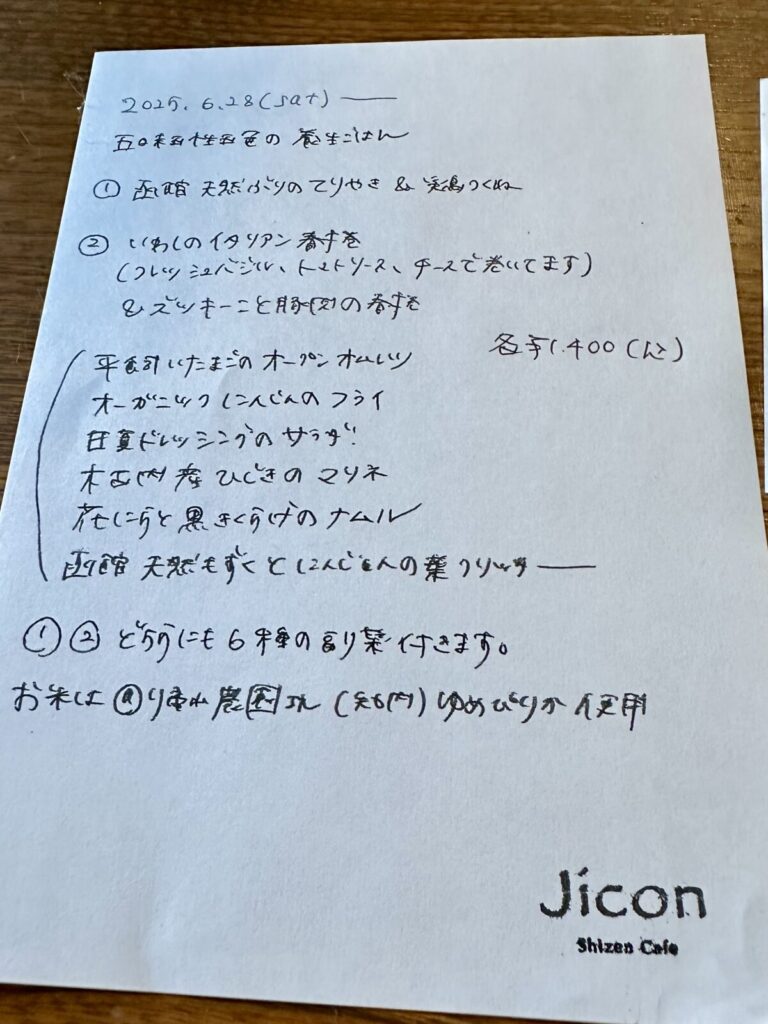 2025.6.28(sat)
五味五性五色の 養生ごはん
① 函館 天然ぶりのてりやき & 鶏つくね
② いわしのイタリアン春巻
(フレッシュバジル、トマトソース、チーズで巻いてます)
& ズッキーニと豚肉の春巻
各¥1.400(込)
平飼いたまごのオープンオムレツ
オーガニックにんじんのフライ
ドレッシングのサラダ!
木古内産ひじきのマリネ
花にらと黒きくらげのナムル
函館 天然もずくとにんじんの葉フリッタ
①② どちらにも6種の副菜付きます。
お米は 農園さん (知内) ゆめぴりか使用
Jicon
Shizen Cafe